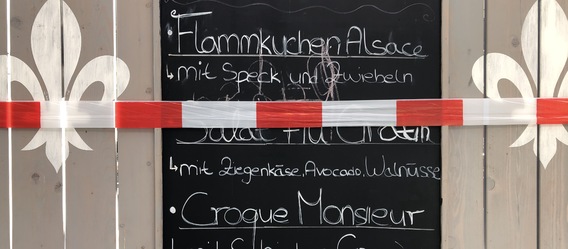 • Flammkuchen Alsace
↳ mit Speck und Zwiebeln
Salat
↳ mit Ziegenkäse, Avocado, Walnüsse
• Croque Monsieur
↳ mit